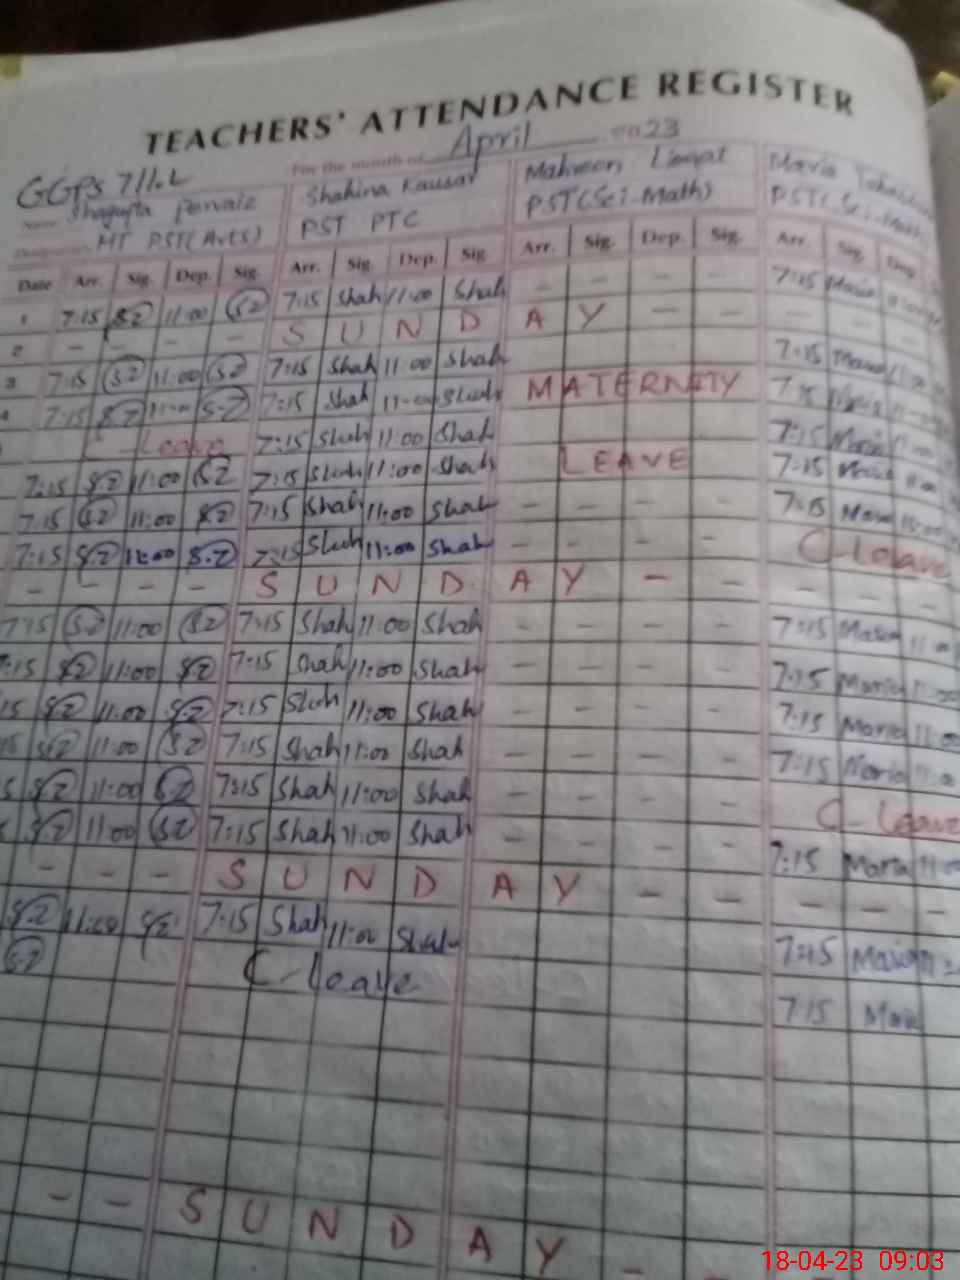 TEACHERS' ATTENDANCE REGISTER
For the month of April 2023
GGPS 7/1.L
Name Shagufta Pervaiz Shahina Kausar Mahreen Liaqat Maria
HT PST(Arts) PST PTC PST(Sci-Math) PST(Sci-Math)
Date Arr. Sig. Dep. Sig. Arr. Sig. Dep. Sig. Arr. Sig. Dep. Sig. Arr. Sig. Dep.
1 7:15 S.Z 11:00 S.Z 7:15 Shah 11:00 Shah - - - - 7:15 Maria
2 - - - - S U N D A Y - - - -
3 7:15 S.Z 11:00 S.Z 7:15 Shah 11:00 Shah 7:15 Maria
4 7:15 S.Z 11:00 S.Z 7:15 Shah 11:00 Shah MATERNITY 7:15 Maria 11:00
C-Leave 7:15 Shah 11:00 Shah 7:15 Maria 11:00
7:15 S.Z 11:00 S.Z 7:15 Shah 11:00 Shah LEAVE 7:15 Maria 11:00
7:15 S.Z 11:00 S.Z 7:15 Shah 11:00 Shah - - - - 7:15 Maria 11:00
7:15 S.Z 11:00 S.Z 7:15 Shah 11:00 Shah - - - - C-Leave
- - - - S U N D A Y - - - - -
7:15 S.Z 11:00 S.Z 7:15 Shah 11:00 Shah - - - - 7:15 Maria 11:00
7:15 S.Z 11:00 S.Z 7:15 Shah 11:00 Shah - - - - 7:15 Maria 11:00
15 S.Z 11:00 S.Z 7:15 Shah 11:00 Shah - - - - 7:15 Maria 11:00
15 S.Z 11:00 S.Z 7:15 Shah 11:00 Shah - - - - 7:15 Maria 11:00
5 S.Z 11:00 S.Z 7:15 Shah 11:00 Shah - - - - C-Leave
S.Z 11:00 S.Z 7:15 Shah 11:00 Shah - - - - 7:15 Maria 11:00
- - - S U N D A Y - - - - -
S.Z 11:00 S.Z 7:15 Shah 11:00 Shah 7:15 Maria
S.Z C-leave 7:15 Maria
- - S U N D A Y - -
18-04-23 09:03